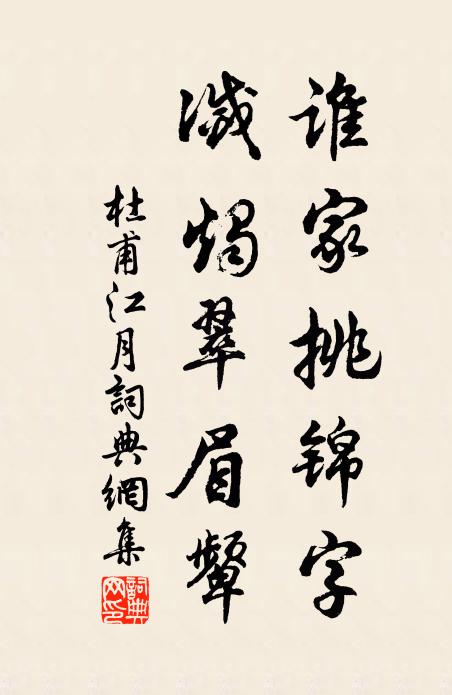 誰家挑錦字
滅燭翠眉顰
杜甫江月詞典網集
詞典網印